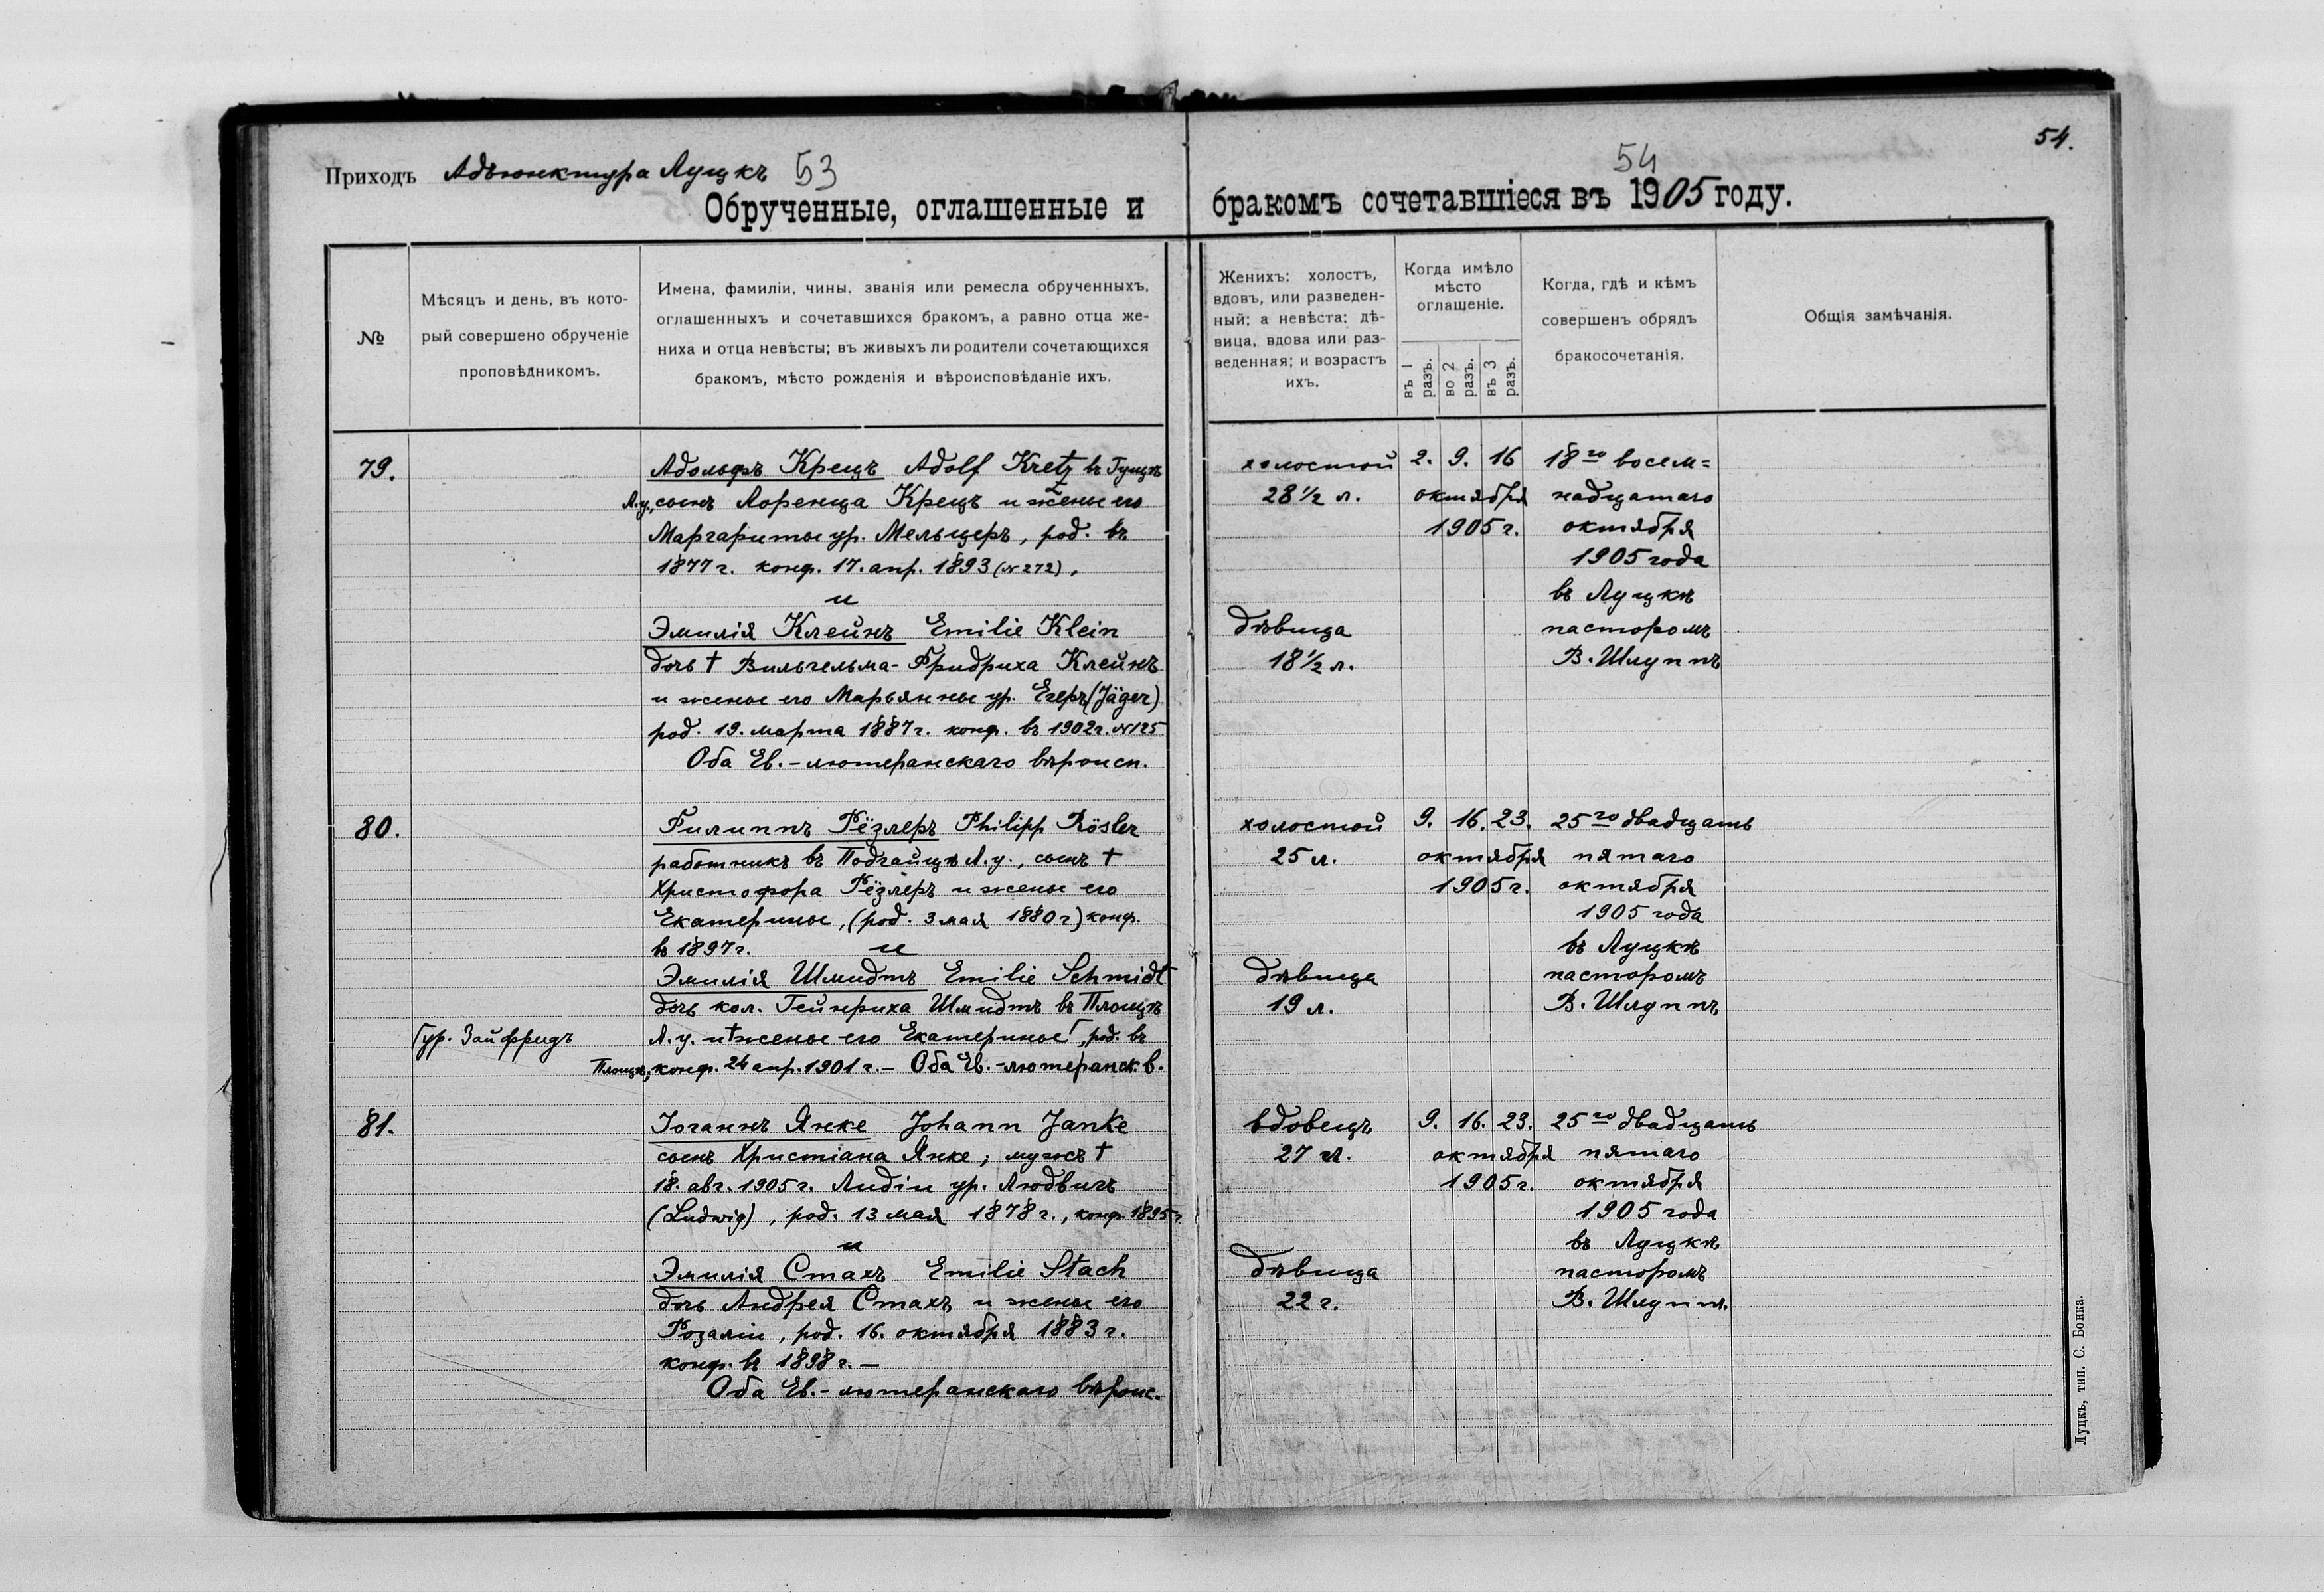 Приходъ Адъюнктура Луцкъ 53
Обрученные, оглашенные и
№
Мѣсяцъ и день, въ кото-
рый совершено обрученіе
проповѣдникомъ.
Имена, фамиліи, чины, званія или ремесла обрученныхъ,
оглашенныхъ и сочетавшихся бракомъ, а равно отца же-
ниха и отца невѣсты; въ живыхъ ли родители сочетающихся
бракомъ, мѣсто рожденія и вѣроисповѣданіе ихъ.
79.
Адольфъ Крецъ Adolf Kretz въ Гущѣ
Л.у., сынъ Лоренца Крецъ и жены его
Маргариты ур. Мельцеръ, род. въ
1877 г. конф. 17. апр. 1893 (N 272),
и
Эмилія Клейнъ Emilie Klein
дочь † Вильгельма-Фридриха Клейнъ
и жены его Марьянны ур. Егеръ (Jäger)
род. 19. марта 1887 г. конф. въ 1902 г. N 125
Оба Ев.-лютеранскаго вѣроисп.
80.
Филиппъ Рёзлеръ Philipp Rösler
работникъ въ Подгайцѣ Л.у., сынъ †
Христофора Рёзлеръ и жены его
Екатерины, (род. 3 мая 1880 г) конф.
въ 1897 г. и
Эмилія Шмидтъ Emilie Schmidt
дочь кол. Гейнриха Шмидтъ въ
Л.у. и † жены его Екатерины Г, род. въ
Гур. Зайфридъ
конф. 24 апр. 1901 г. – Оба Ев.-лютеранск. в.
81.
Іоганнъ Янке Johann Janke
сынъ Христіана Янке; мужъ †
18. авг. 1905 г. Лидіи ур. Людвигъ
(Ludwig), род. 13 мая 1878 г., конф. 1895 г
и
Эмилія Стахъ Emilie Stach
дочь Андрея Стахъ и жены его
Розаліи, род. 16. октября 1883 г.
конф. въ 1898 г. –
Оба Ев.-лютеранскаго вѣроис.
54.
54
бракомъ сочетавшіеся въ 1905 году.
Женихъ: холостъ,
вдовъ, или разведен-
ный; а невѣста: дѣ-
вица, вдова или раз-
веденная; и возрастъ
ихъ.
Когда имѣло
мѣсто
оглашеніе.
въ 1 разъ.
во 2 разъ.
въ 3 разъ.
Когда, гдѣ и кѣмъ
совершенъ обрядъ
бракосочетанія.
Общія замѣчанія.
холостой 2. 9. 16 18го восем=
28 ½ л. октября надцатаго
1905 г. октября
1905 года
въ Луцкѣ
дѣвица пасторомъ
18 ½ л. В. Шлуппъ
холостой 9. 16. 23. 25го двадцать
25 л. октября пятаго
1905 г. октября
1905 года
въ Луцкѣ
дѣвица пасторомъ
19 л. В. Шлуппъ
вдовецъ 9. 16. 23. 25го двадцать
27 л. октября пятаго
1905 г. октября
1905 года
въ Луцкѣ
дѣвица пасторомъ
22 г. В. Шлуппъ.
Луцкъ, тип. С. Бонка.